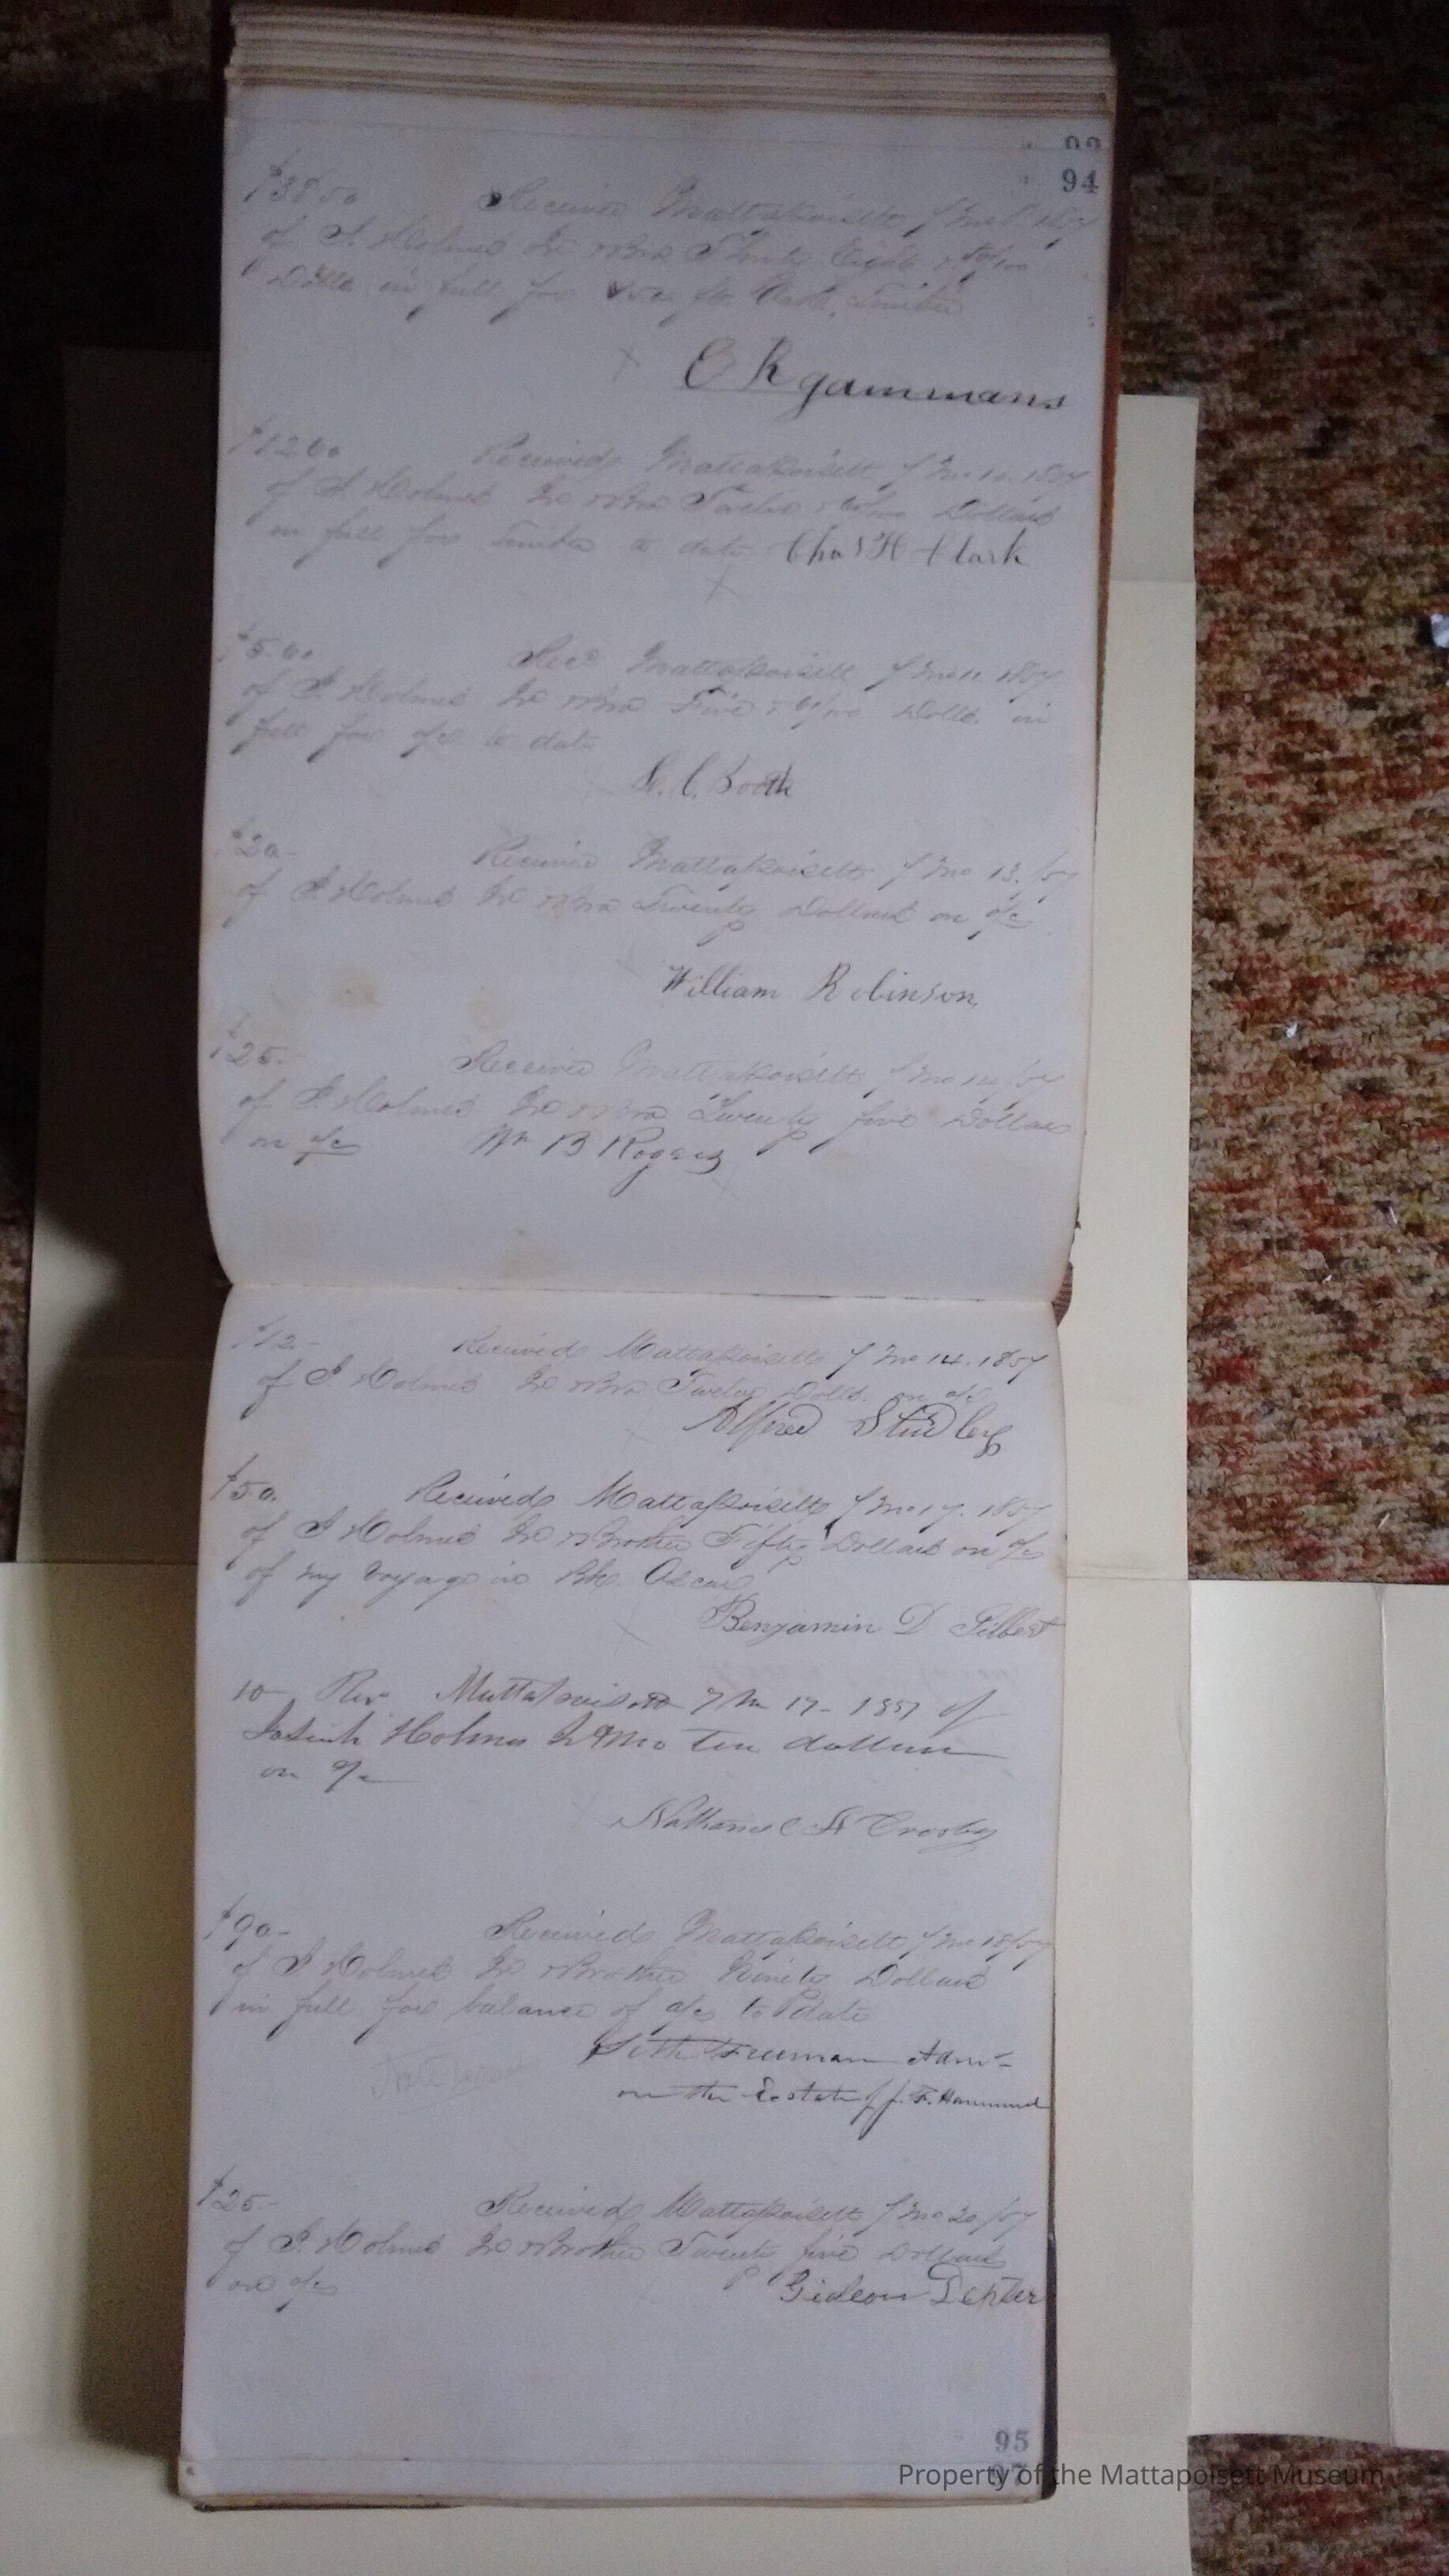 94
$38.50 Received Mattapoisett 7 mo 1857
of J. Holmes Jr & Bro Thirty Eight & 50/100
Dolls in full for Timber
E R Gammans
$12.60 Received Mattapoisett 7 mo 11. 1857
of J. Holmes Jr & Bro Twelve & 60/100 Dollars
in full for Timber to date Chas H Clark
$5.61 Recd Mattapoisett 7 mo 11. 1857
of J. Holmes Jr & Bro Five & 61/100 Dolls. in
full for a/c to date
S. C. Booth
$20- Received Mattapoisett 7 mo 13./57
of J. Holmes Jr & Bro Twenty Dollars on a/c
William Robinson
$25.- Received Mattapoisett 7 mo 14/57
of J. Holmes Jr & Bro Twenty five Dollars
on a/c Wm B Rogers
$12.- Received Mattapoisett 7 mo 14. 1857
of J. Holmes Jr & Bro Twelve Dolls. on a/c
Alfred Studley
$50. Received Mattapoisett 7 mo 17. 1857
of J. Holmes Jr & Brother Fifty Dollars on a/c
of my Voyage in Bk. Oscar
Benjamin D Gilbert
10- Rec Mattapoisett 7 Mo 17- 1857 of
Josiah Holmes Jr & Bro Ten dollars
on a/c
Nathaniel A Crosby
$90- Received Mattapoisett 7 mo 18/57
of J. Holmes Jr & Brother Ninety Dollars
in full for balance of a/c to date
Seth Freeman Admr
on the Estate of J. F. Hammond
$25.- Received Mattapoisett 7 mo 20/57
of J. Holmes Jr & Brother Twenty five Dollars
on a/c Gideon Dexter
95
Property of the Mattapoisett Museum